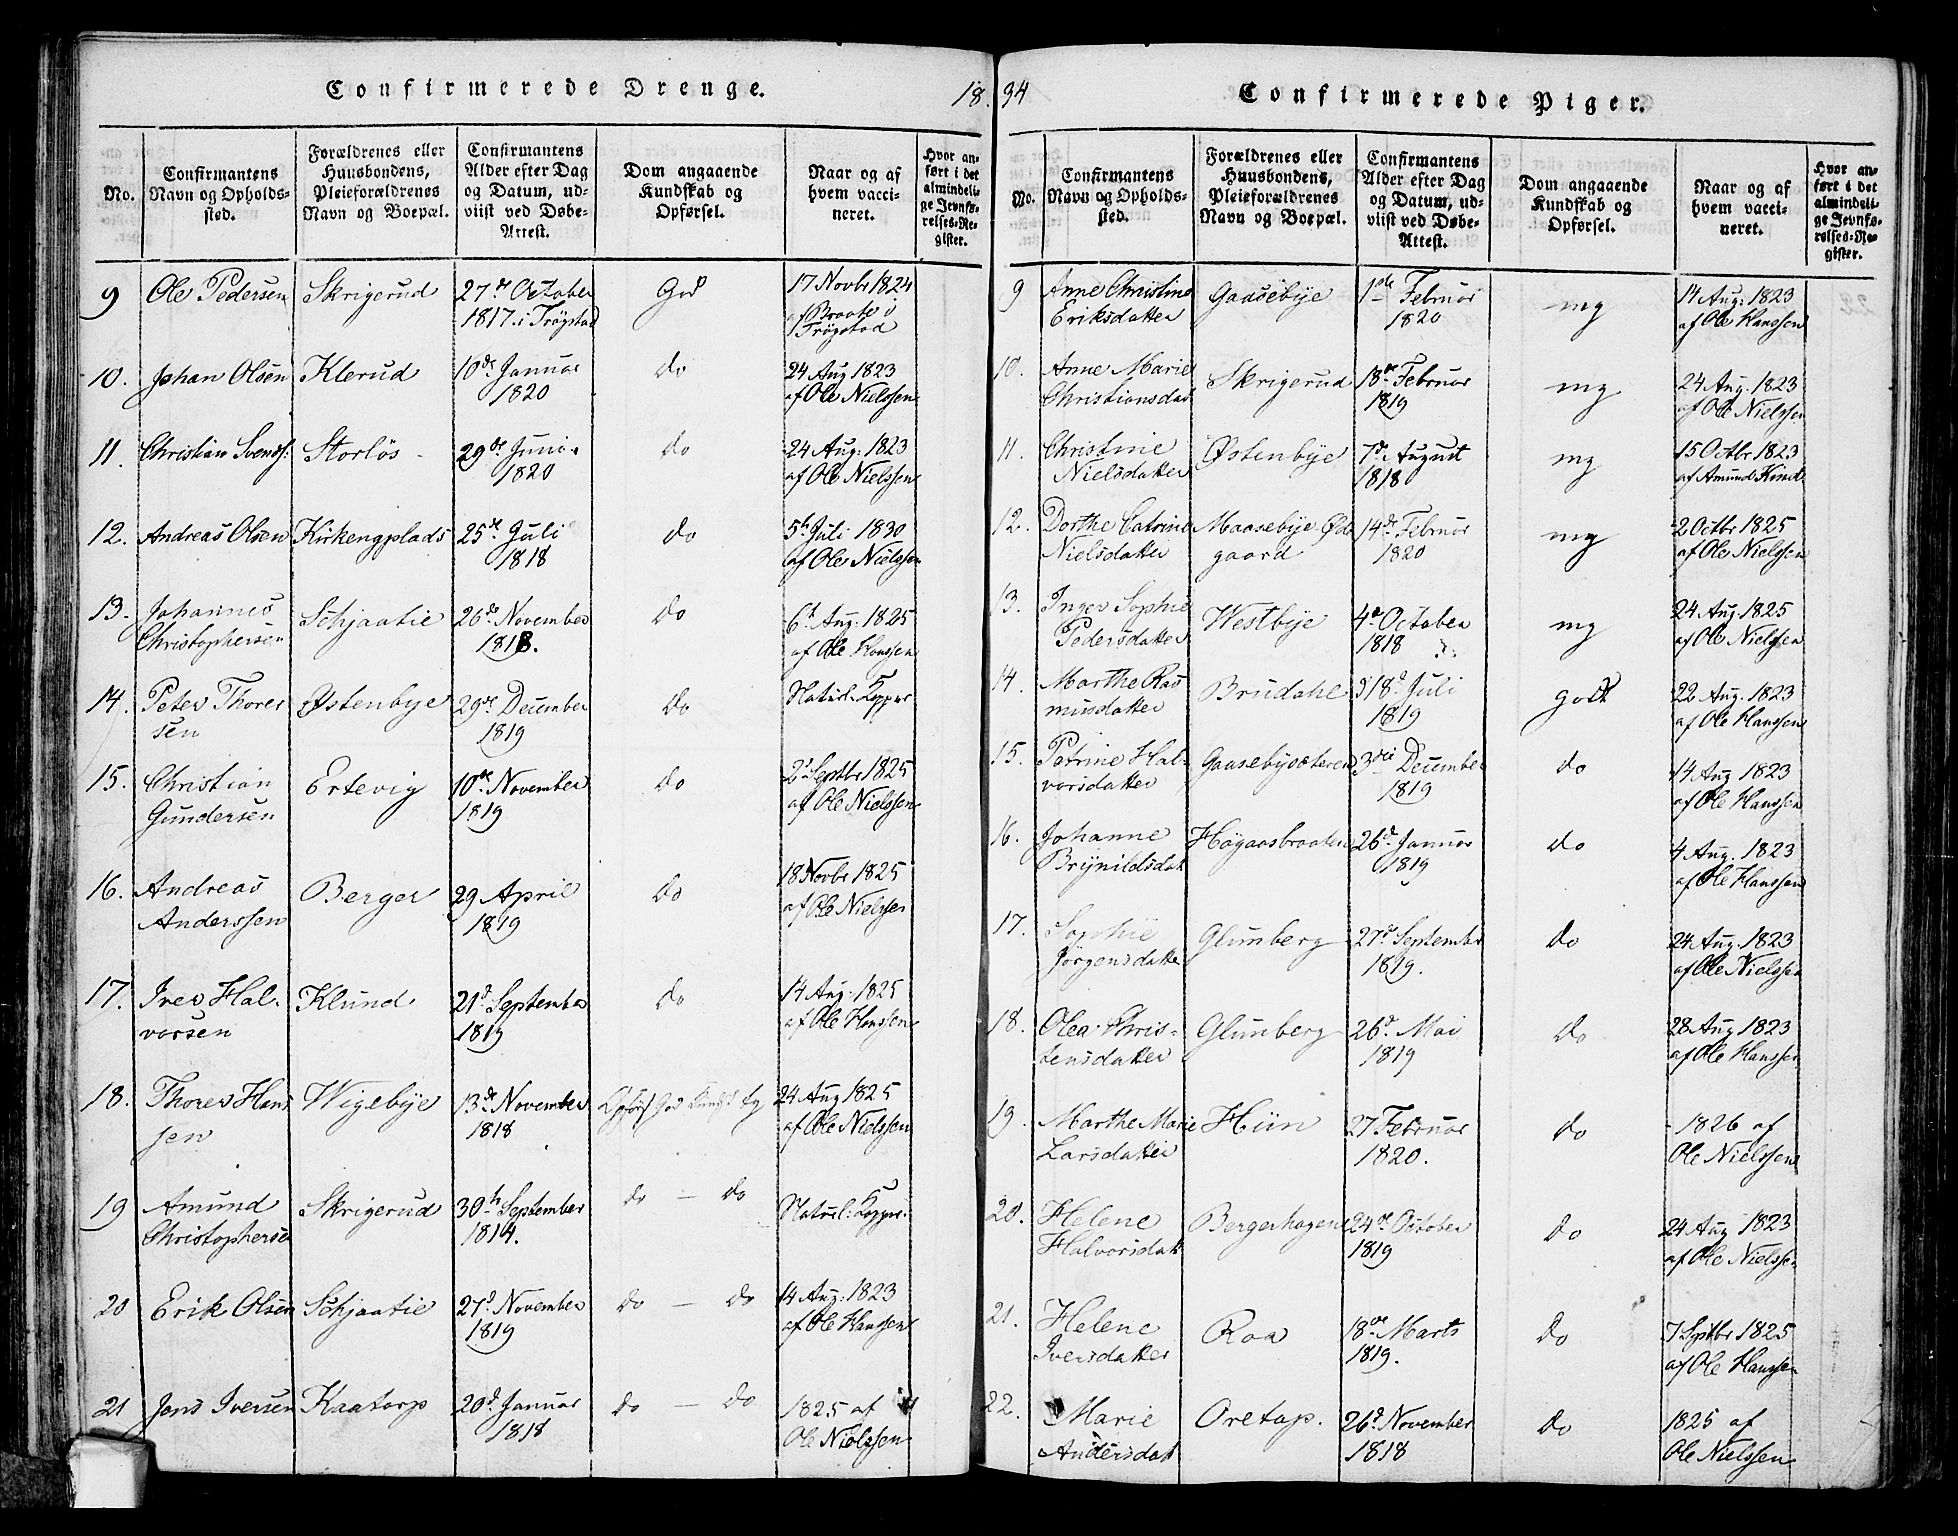 Confirmerede Drenge.
18.
No.
Confirmantens Navn og Opholdssted.
Forældrenes eller Huusbondens, Pleieforældrenes Navn og Boepæl.
Confirmantens Alder efter Dag og Datum, udviist ved Døbe-Attest.
Dom angaaende Kundskab og Opførsel.
Naar og af hvem vaccineret.
Hvor anført i det almindelige Jevnførelses-Register.
9 Ole Pedersen Skrigerud 27de October God 17 Novbr 1824
1817. i Trøgstad af Braate i
Trøgstad
10. Johan Olsen Klerud 10de Januar do 24 Aug 1823
1820 af Ole Nielssen
11. Christian Svends: Storløs 29de Juni do 24 Aug: 1823
1820 af Ole Nielssen
12. Andreas Olsen Kirkengplads 25de Juli do 5t Juli 1830
1818 af Ole Nielssen
13. Johannes Schjaatie 26de November do 6t Aug: 1825
Christophersen 1818. af Ole Hanssen
14. Peter Thorer Østenbye 29de December do Naturl: Kopper
sen 1819
15. Christian Ertevig 10de November do 2 Septbr 1825
Gundersen 1819 af Ole Nielssen
16. Andreas Berger 29 April do 18 Novbr 1825
Anderssen 1819 af Ole Nielssen
17. Iver Hal- Klund 21d September do 14 Aug. 1825
vorsen 1819 af Ole Hanssen
18. Thorer Hans Wigebye 13de November Opførs: God Kundsk: tg 24 Aug 1825
sen 1818 af Ole Nielssen
19 Amund Skrigerud 30te September do — do Naturl: Kopper
Christophersen 1814.
20 Erik Olsen Schjaatie 27d November do — do 14 Aug: 1823
1819 af Ole Hanssen
21 Jens Iversen Kaatorp 20d Januar do — do 1825 af
1818 Ole Nielssen
34
Confirmerede Piger.
No.
Confirmantens Navn og Opholdssted.
Forældrenes eller Huusbondens, Pleieforældrenes Navn og Boepæl.
Confirmantens Alder efter Dag og Datum, udviist ved Døbe-Attest.
Dom angaaende Kundskab og Opførsel.
Naar og af hvem vaccineret.
Hvor anført i det almindelige Jevnførelses-Register.
9 Anne Christine Gaasebye 1ste Februar mg 14 Aug: 1823
Eriksdatter 1820 af Ole Hanssen
10. Anne Marie Skrigerud 18de Februar mg 24 Aug. 1823
Christiansdat 1819 af Ole Nielssen
11. Christine Østenbye 7de August mg 15 Octbr 1823
Nielsdatter 1818 af Amund
12. Dorthe Catrine Maasebye Øde 14de Februar mg 2 Octbr 1825
Nielsdatter gaard 1820 af Ole Nielssen
13. Inger Sophie Westbye 4de October mg 24 Aug. 1825
Pedersdatter 1818 af Ole Nielssen
14. Marthe Ras Brudahl 18d Juli godt 22 Aug. 1823
musdatter 1819 af Ole Hanssen
15. Patrine Hal- Gaasebyeeteren 3die December do 14 Aug 1823
vorsdatter 1819 af Ole Hanssen
16. Johanne Høgaasbraaten 26d Januar do 4 Aug. 1823
Brynildsdat 1819 af Ole Hanssen
17. Sophie Glumberg 27d September do 24 Aug. 1823
Jørgensdatter 1819. af Ole Nielssen
18. Olea Chris- Glumberg 26d Mai do 28 Aug 1823
tensdatter 1819 af Ole Hanssen
19. Marthe Marie Hiin 27 Februar do - 1826 af
Larsdatter 1820. Ole Nielssen
20. Helene Bergerhagen 24de October do 24 Aug 1823
Halvorsdat 1819 af Ole Nielssen
21. Helene Raa 18de Marts do 7 Septbr 1825
Iversdatter 1819. af Ole Hanssen
22. Marie Oretap. 26d November do 1825 af
Andersdat 1818 Ole Nielssen